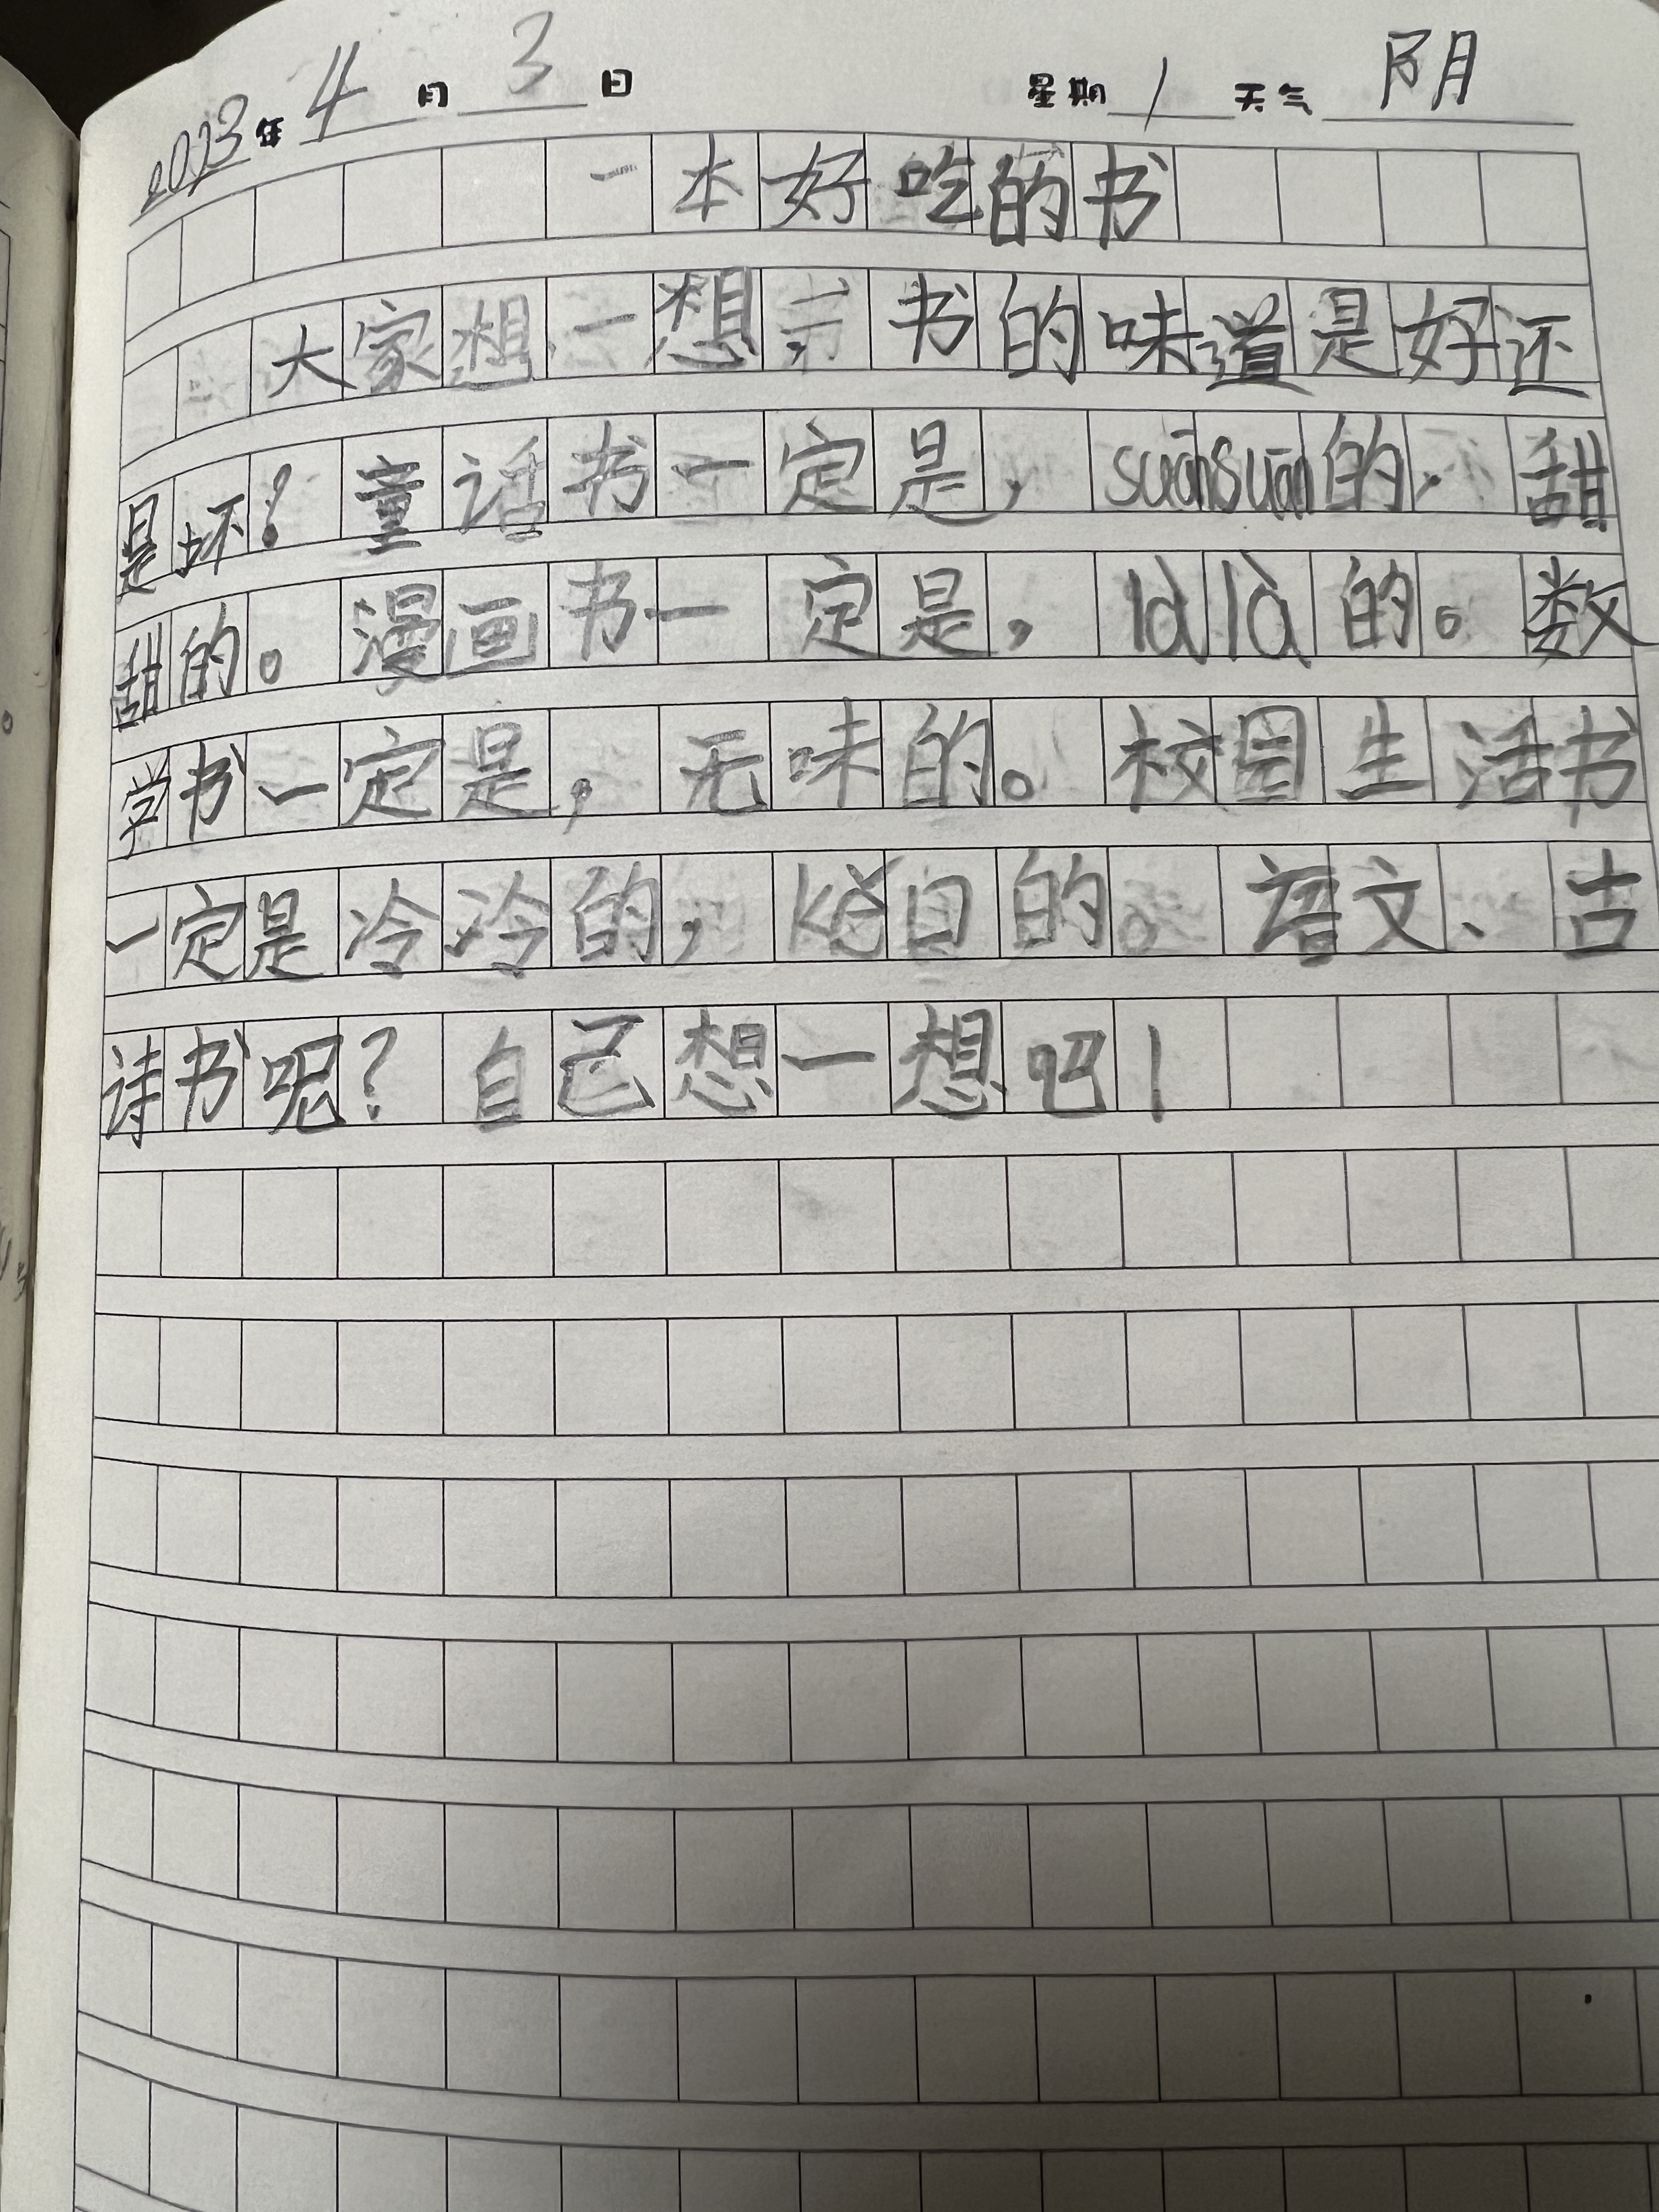 2023年4月3日 星期1天气阴
一本好吃的书
大家想一想,书的味道是好还
是坏?童话书一定是,suānsuān的,甜
甜的。漫画书一定是,làlà的。数
学书一定是,无味的。校园生活书
一定是冷冷的,kě口的。语文、古
诗书呢?自己想一想吧!